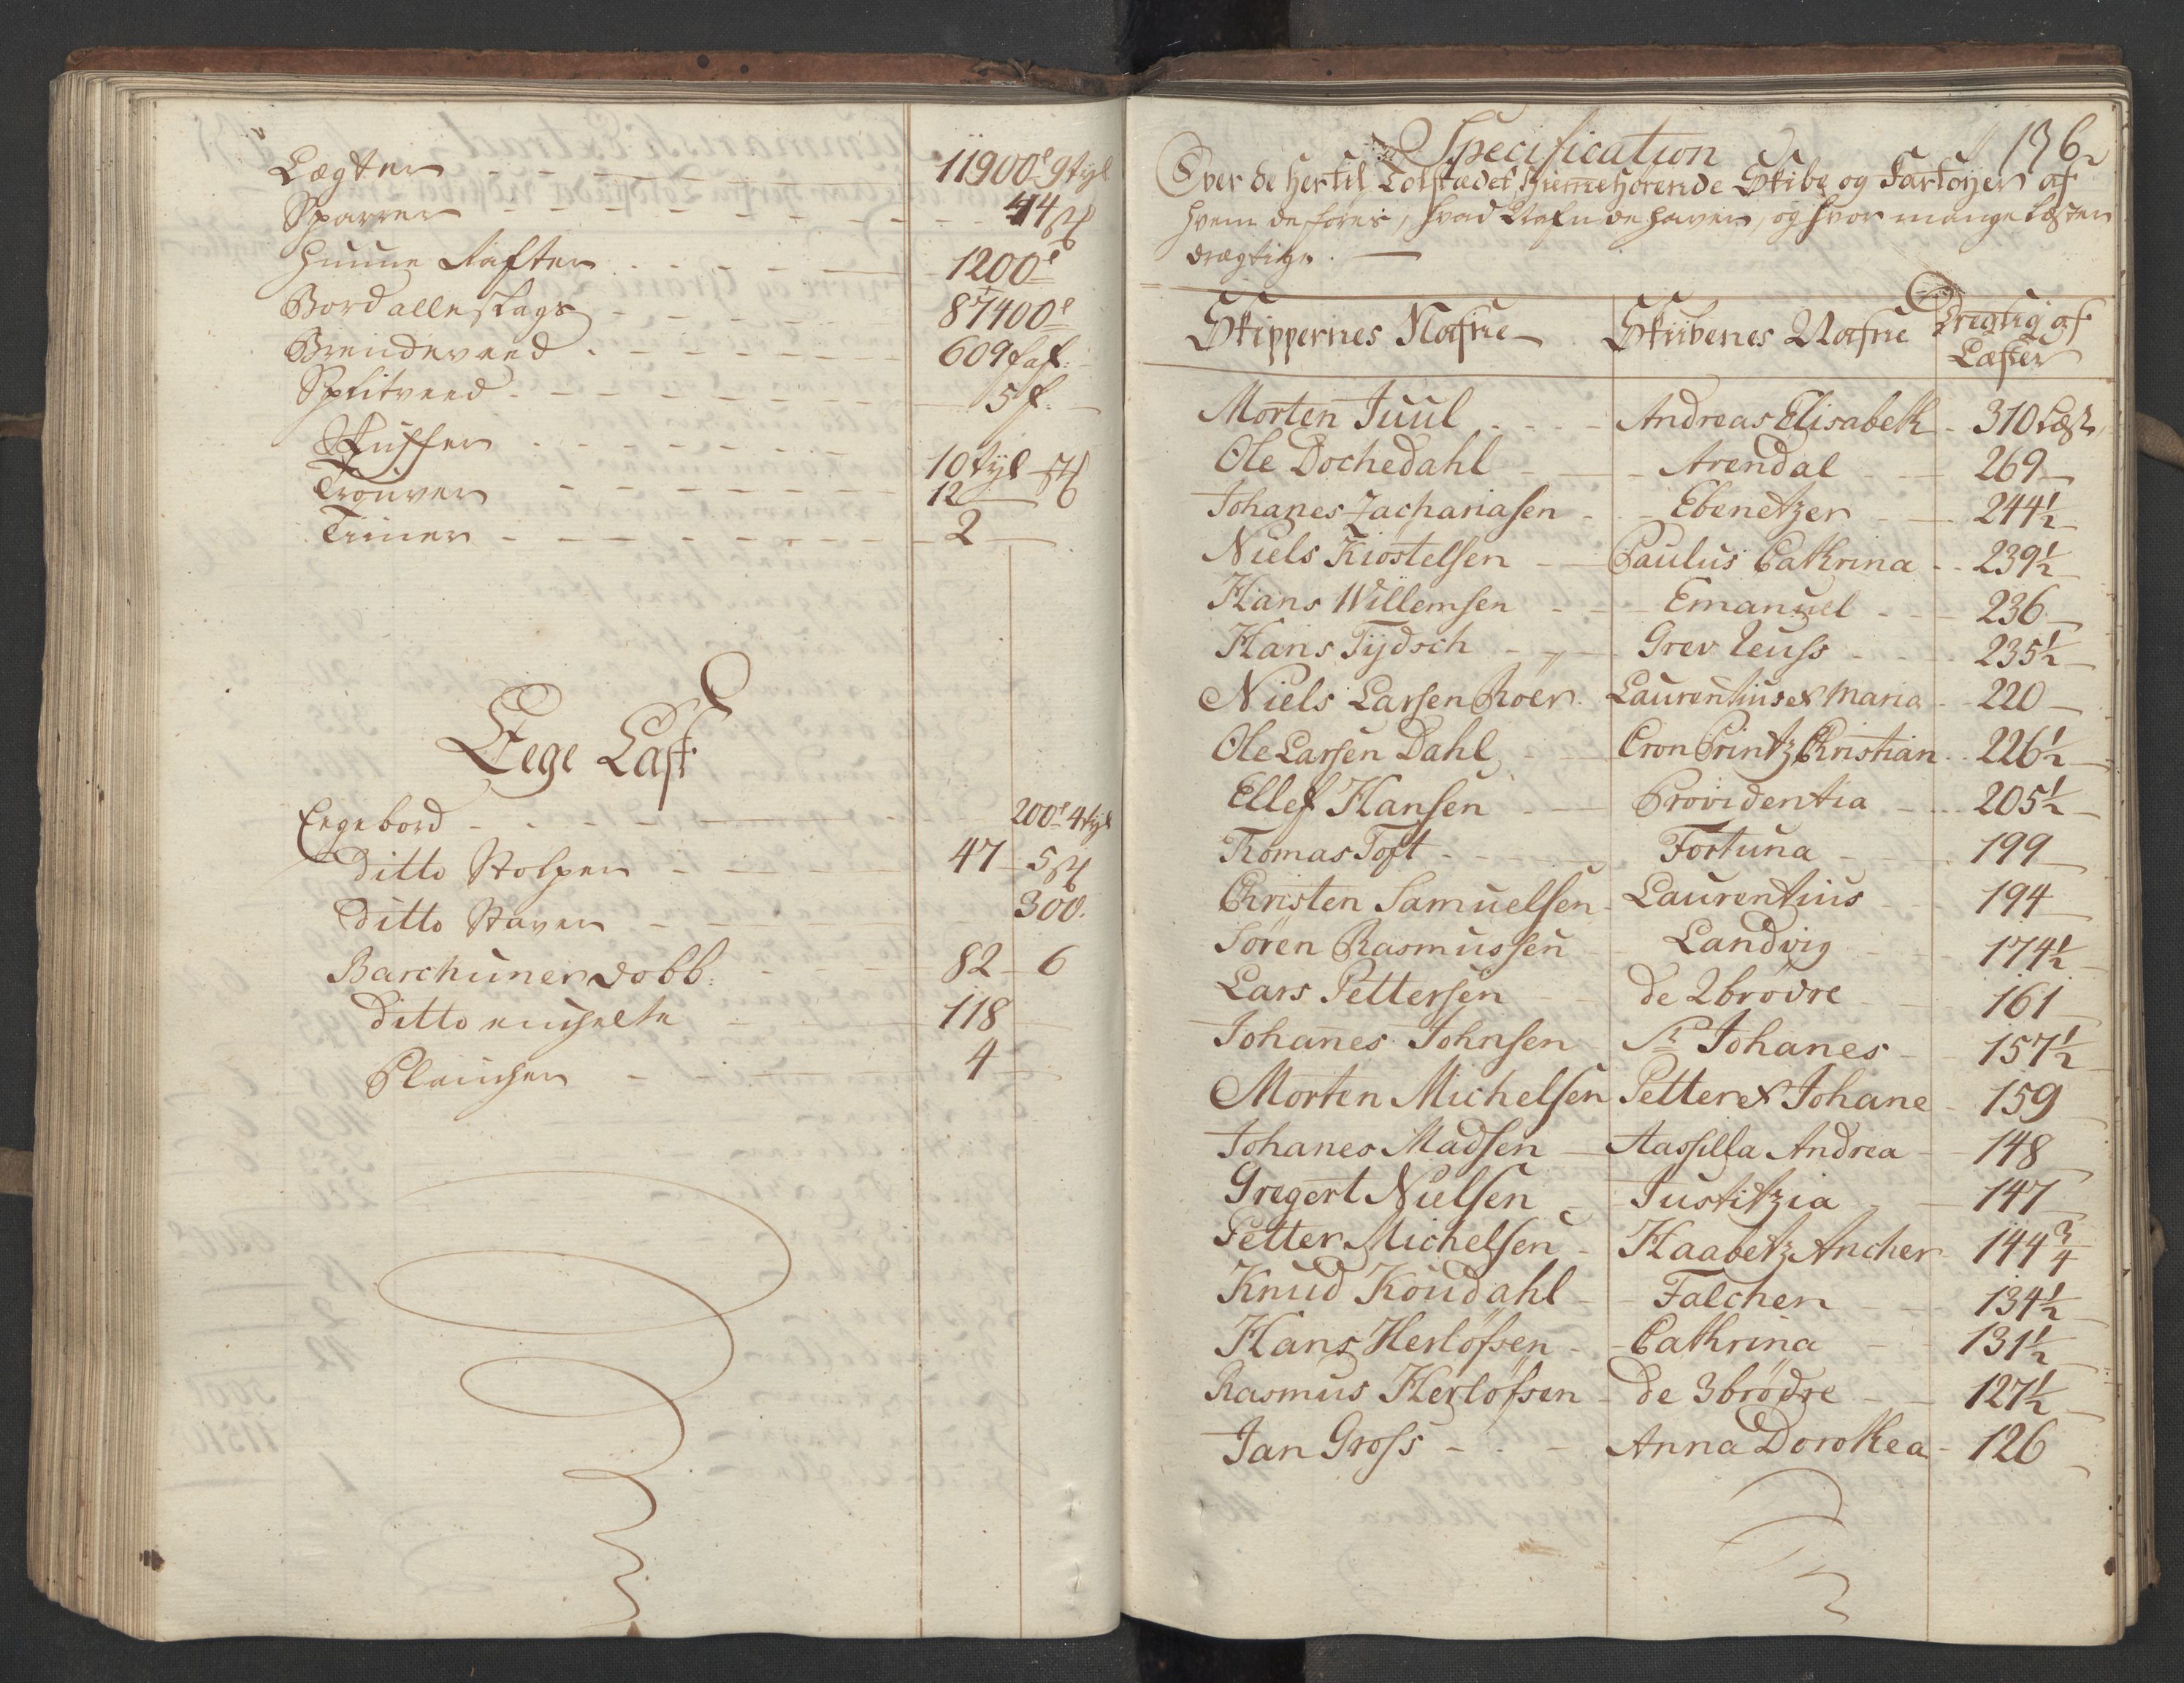 Lægter - - - 11900e 9 tyl
Sparrer - - - 44 st
Huune Rafter - - - 1200e
Bord alle slags - - - 87400e
Brendeveed - - - 609 faf:
Splitveed - - - 5 f.
Skuffer - - - 10 tyl - st
Trönver - - - 12
Timer - - - 2
Eege Last
Eegebord - - - 200e 4 tyl
Ditto Stolper - - - 47 - 5 st
Ditto Staver - - - 300.
Barchuner dobb: - - - 82 - 6
Ditto enchelte - - - 118
Planchen - - - 4
136
Specification
Over de hertil Tolstædet Hiemehörende Skibe og Fartöyer af
hvem de föres, hvad Nafn de haver, og hvor mange Læster
drægtige. —
Skippernes Nafne Skibenes Nafne Drægtig af
Læster
Morten Juul - - - Andreas Elisabeth - 310 Læst
Ole Dochedahl - - Arendal - - 269
Johanes Zachariasen - Ebenetzer - 244 1/2
Niels Kiostelsen - - Paulus Cathrina - - 239 1/2
Hans Willemsen - - Emanuel - - 236
Hans Tÿdsch - - - Grev Reuss - - - 235 1/2
Niels Larsen Roer. Laurentius et Maria - - 220
Ole Larsen Dahl - Cron Printz Christian - - 226 1/2
Ellef Hansen - - Providentia - - 205 1/2
Thomas Toft - - - Fortuna - - 199
Christen Samuelsen - Laurentius - - 194
Sören Rasmussen - Landvig - - 174 1/2
Lars Pettersen - - de 2 brödre - - 161
Johanes Johnsen St Johanes - - 157 1/2
Morten Michelsen Petter et Johane - 159
Johanes Madsen - Aassilla Andrea - 148
Gregert Nielsen - Justitzia - - 147
Petter Michelsen - Haabetz Ancher - 144 3/4
Knud Koudahl - - Falchen - - 134 1/2
Hans Herlofsen - - Cathrina - - 131 1/2
Rasmus Herlofsen - de 3 brödre - - 127 1/2
Jan Gross - - - Anna Dorothea - 126